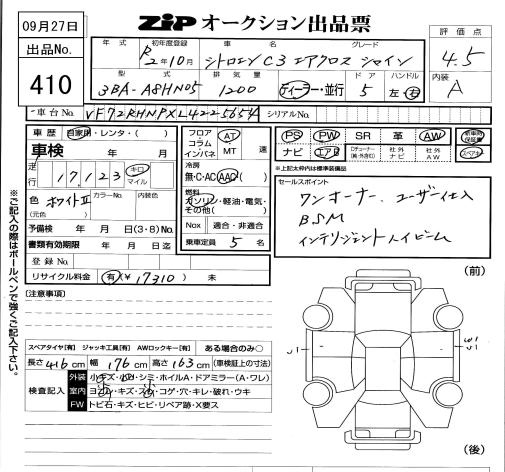 09月27日
ZIP オークション出品票
出品No.
410
年式 初年度登録 車名 グレード
R2年10月 シトロエンC3 エアクロス シャイン
型式 排気量 ドア ハンドル
3BA-A8HN05 1200 ディーラー・並行 5 左・右
評価点
4.5
内装
A
車台No. VF72RHNPXL4225654 シリアルNo.
車歴 自家用・レンタ・( )
車検
走行 17,123 キロ マイル
色 ホワイトII カラーNo. 内装色
(元色)
予備検 年 月 日(3・6ヵ月)
書類有効期限 年 月 日迄
登録No.
リサイクル料金 有(¥17310) 未
フロア コラム インパネ AT MT 速
冷房
無・C・AC・AAC
燃料
ガソリン・軽油・電気・その他( )
Nox 適合・非適合
乗車定員 5 名
PS PW SR 革 AW
ナビ エアB Dチューナー 社外ナビ 社外AW
新車時保証書
スペアキー
※上記太枠内は標準装備品
セールスポイント
ワンオーナー、ユーザー仕入
BSM
インテリジェントハイビーム
※ご記入の際はボールペンで強くご記入下さい。
[注意事項]
スペアタイヤ[有] ジャッキ工具[有] AWロックキー[有] ある場合のみ○
長さ416cm 幅176cm 高さ163cm (車検証上の寸法)
検査記入
外装 小キズ・凹・シミ・ホイルA・ドアミラー(A・ワレ)
室内 ヨゴレ・キズ・スレ・コゲ・穴・キレ・破れ・ウキ
FW トビ石・キズ・ヒビ・リペア跡・X要ス
(前)
U1
W1
U1
(後)